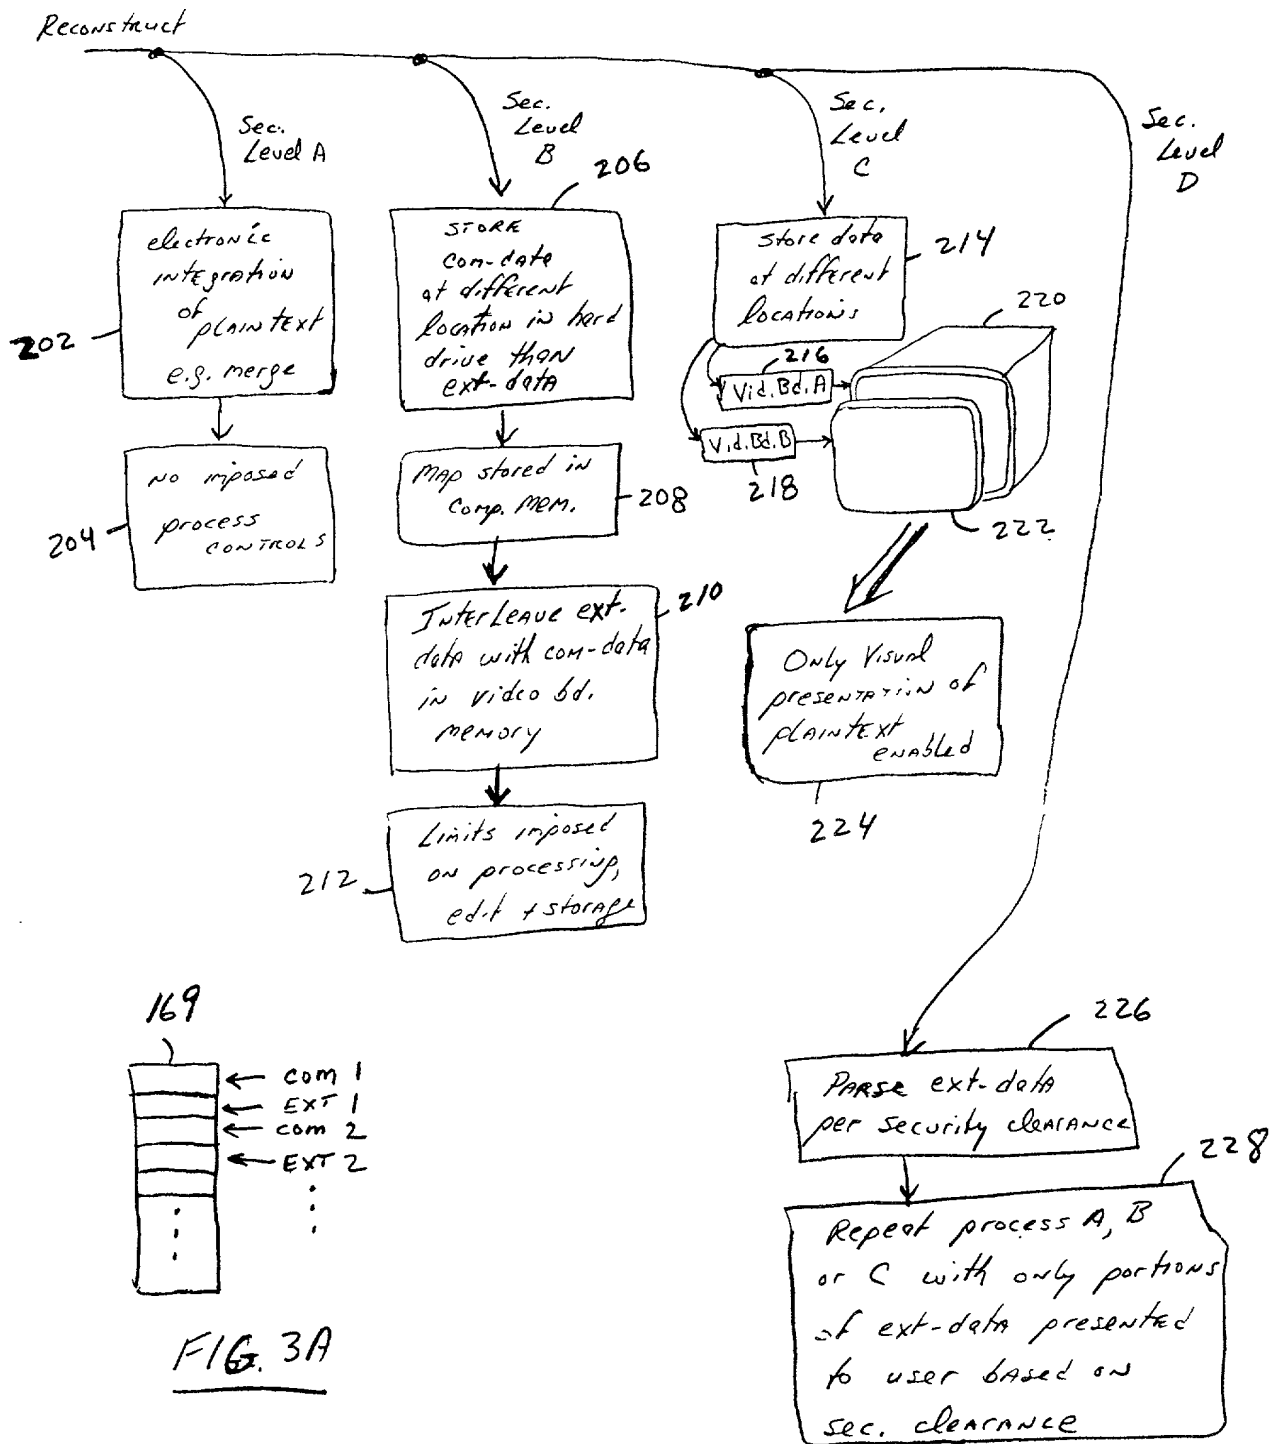 Reconstruct
Sec.
Level A
Sec.
Level
B
Sec.
Level
C
Sec.
Level
D
202
electronic
integration
of
plaintext
e.g. merge
204
No imposed
process
controls
206
STORE
com-data
at different
location in hard
drive than
ext-data
Map stored in
Comp. Mem.
208
210
Interleave ext-
data with com-data
in video bd.
memory
212
Limits imposed
on processing,
edit + storage
214
Store data
at different
locations
216
Vid.Bd.A
Vid.Bd.B
218
220
222
Only Visual
presentation of
plaintext
enabled
224
226
Parse ext-data
per security clearance
228
Repeat process A, B
or C with only portions
of ext-data presented
to user based on
sec. clearance
169
com 1
EXT 1
com 2
EXT 2
FIG. 3A